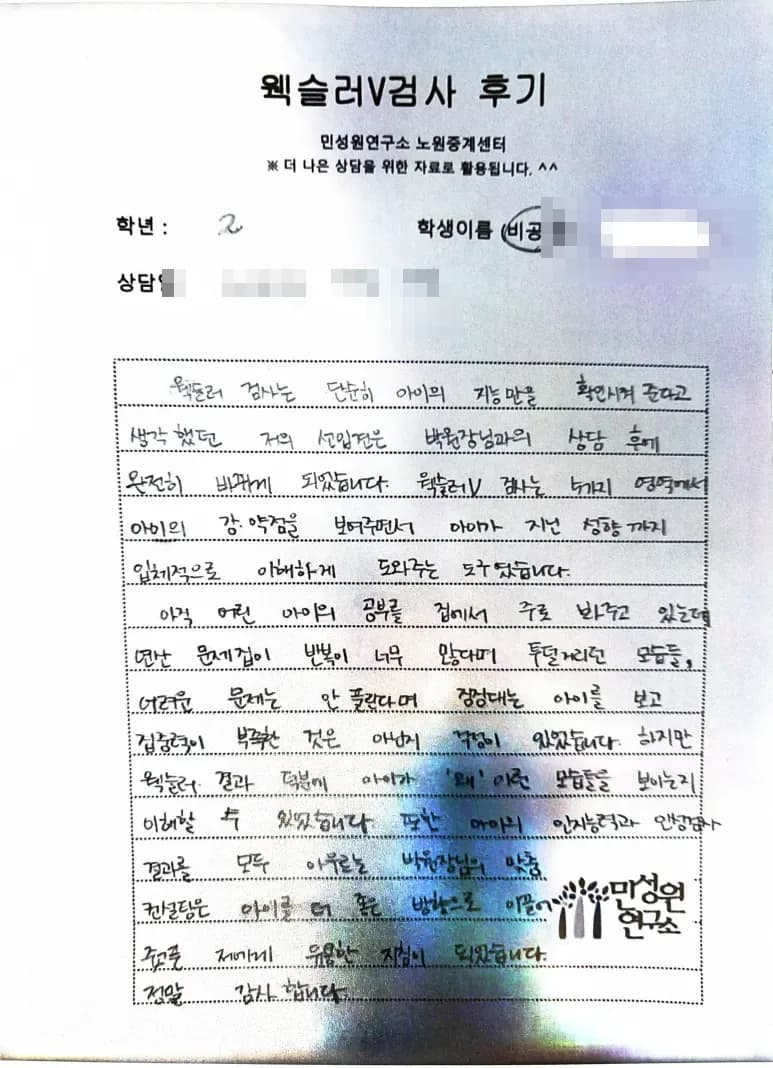 웩슬러V검사 후기
민성원연구소 노원중계센터
※ 더 나은 상담을 위한 자료로 활용됩니다. ^^
학년 : 2
학생이름 (비공
상담
웩슬러 검사는 단순히 아이의 지능만을 확인시켜 준다고
생각했던 저의 선입견은 박원장님과의 상담 후에
완전히 바뀌게 되었습니다. 웩슬러V 검사는 5가지 영역에서
아이의 강·약점을 보여주면서 아이가 지닌 성향까지
입체적으로 이해하게 도와주는 도구였습니다.
아직 어린 아이의 공부를 집에서 주로 봐주고 있는데
연산 문제집이 반복이 너무 많다며 투덜거리던 모습들,
어려운 문제는 안 풀린다며 징징대는 아이를 보고
집중력이 부족한 것은 아닌지 걱정이 있었습니다. 하지만
웩슬러 결과 덕분에 아이가 '왜' 이런 모습들을 보이는지
이해할 수 있었습니다. 또한 아이의 인지능력과 인성검사
결과를 모두 아우르는 박원장님의 맞춤
컨설팅은 아이를 더 좋은 방향으로 이끌어
제에게 유용한 지침이 되었습니다.
정말 감사합니다.
민성원
연구소